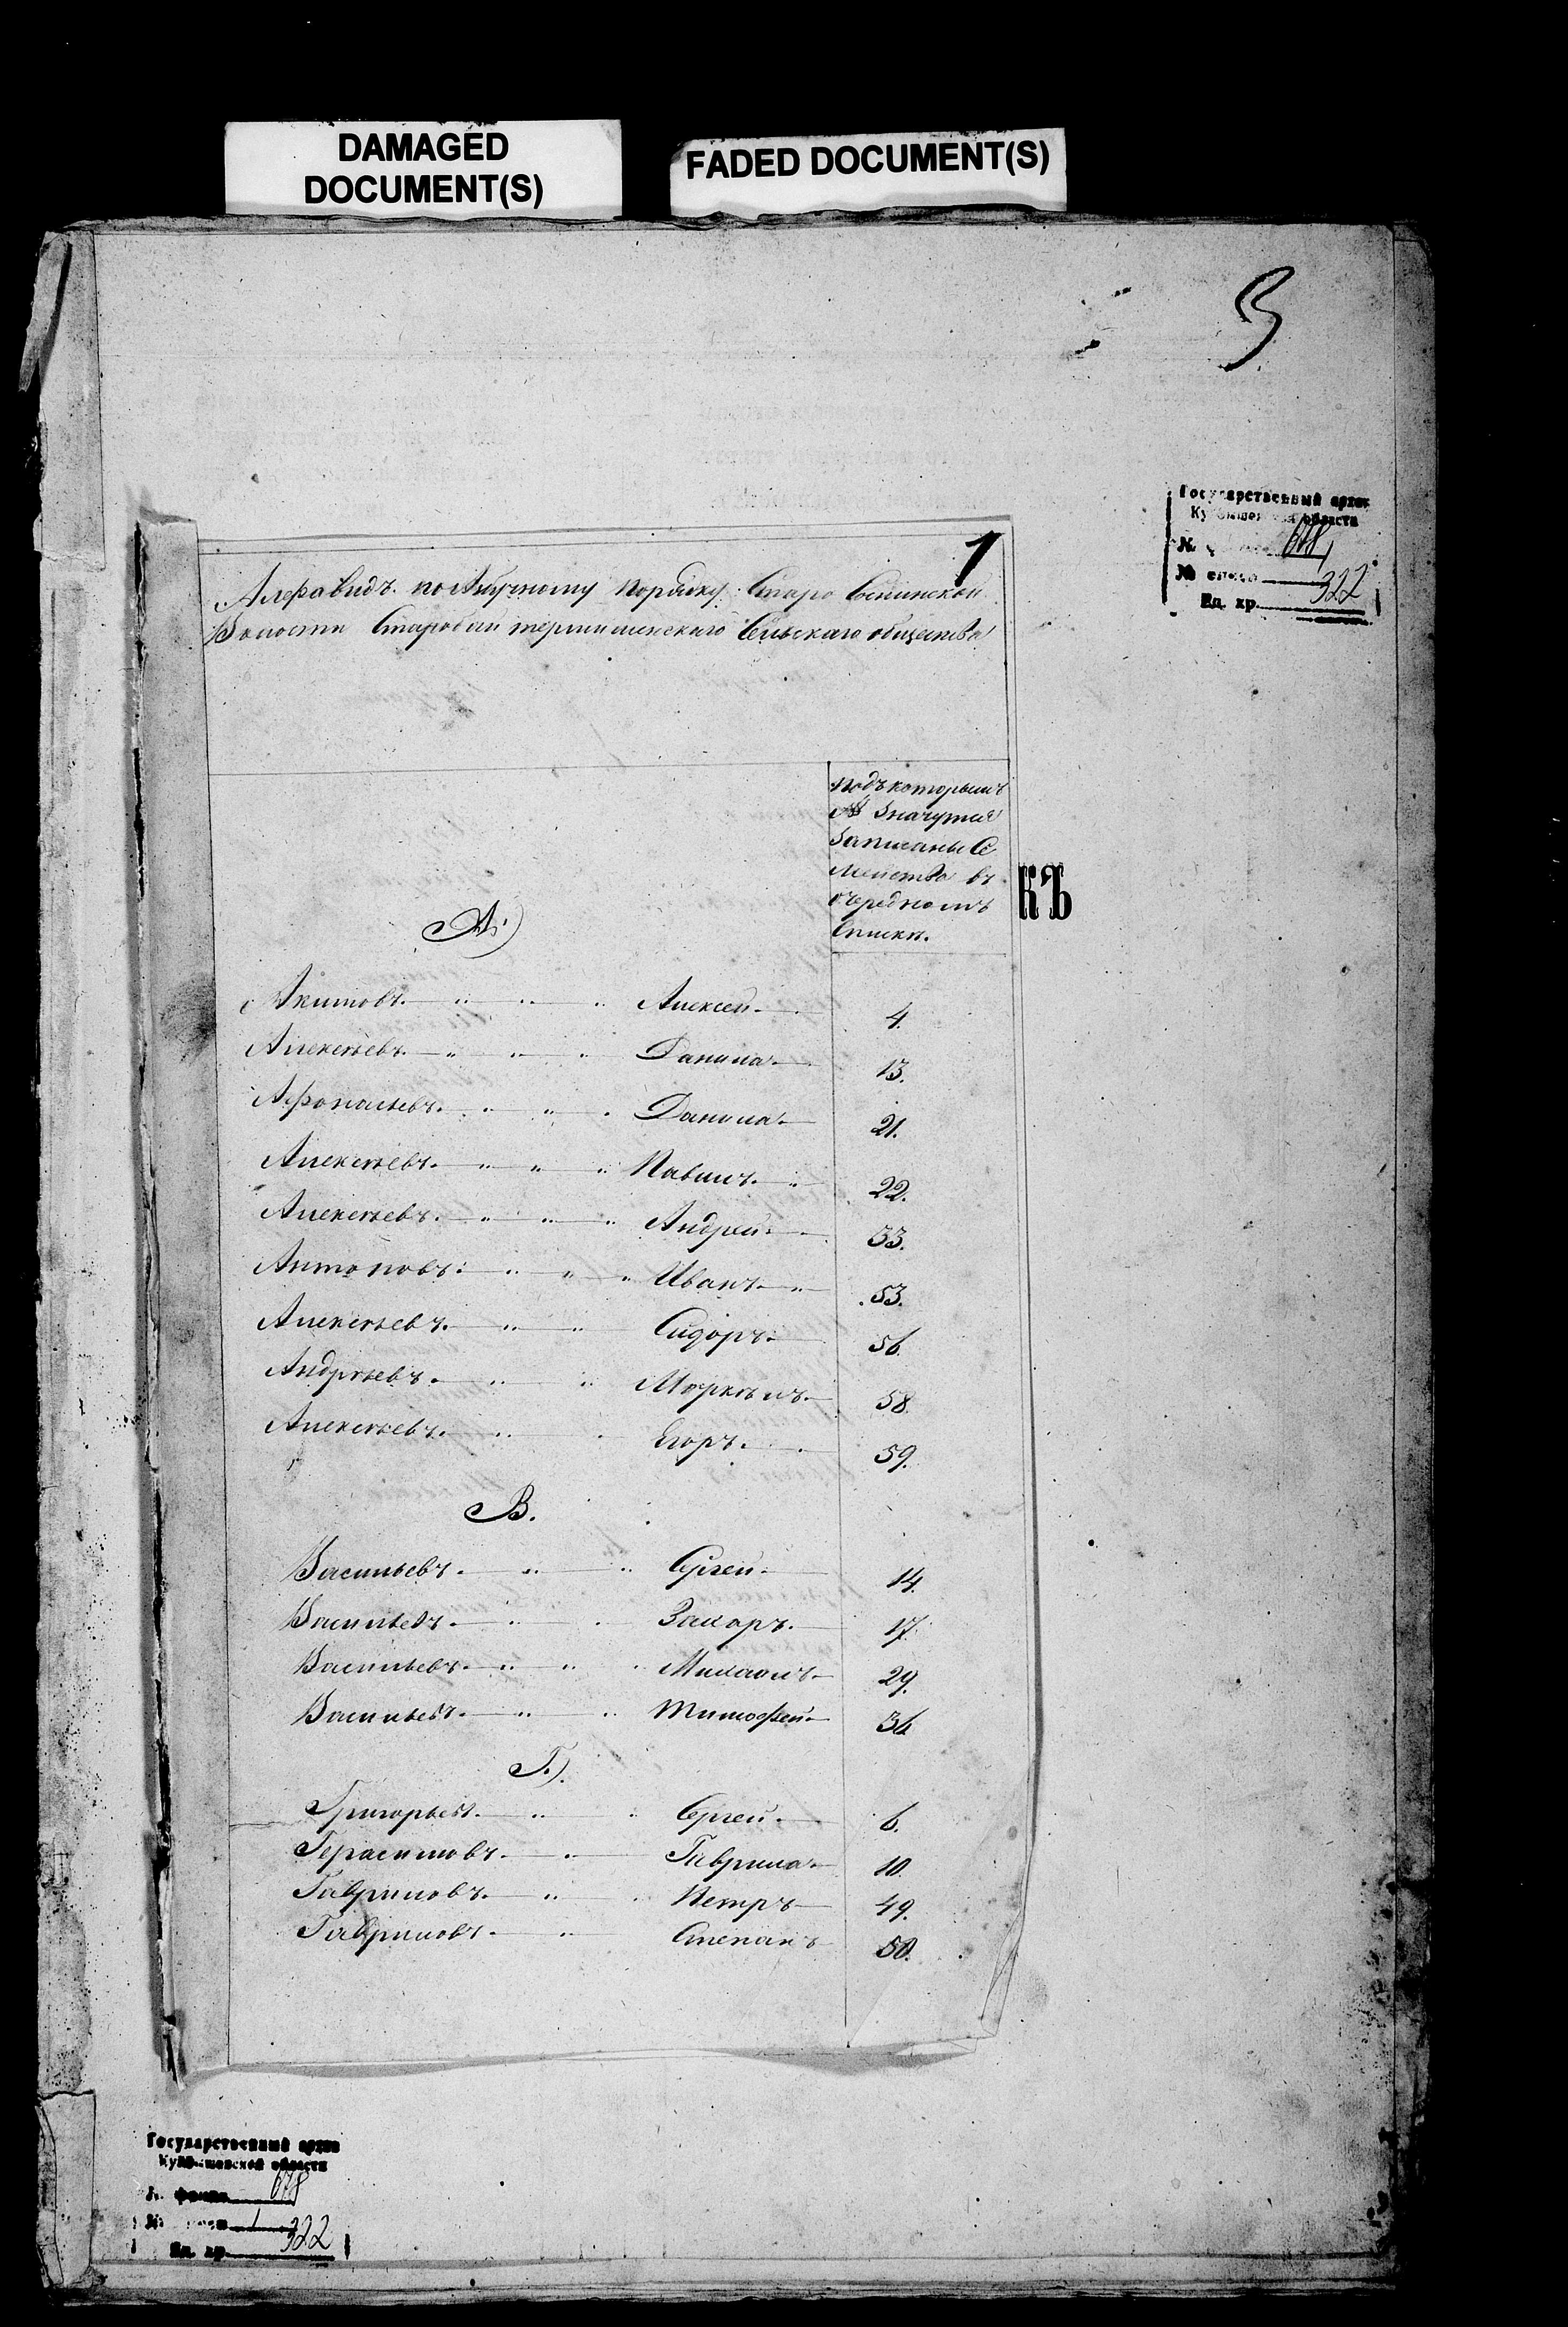 DAMAGED
DOCUMENT(S)
FADED DOCUMENT(S)
Государственный архив
области
№ 678
№ 1
Ед. хр. 322
1
Алфавидъ по Азбучному порядку Старо
Волости Сельскаго общества
Подъ которымъ
№ Значутся
Записаны Се
мейства въ
очередномъ
Списки.
КЪ
А.)
Акимовъ. Алексей 4.
Алексѣевъ. Данила 13.
Афонасьевъ. Данила 21.
Алексѣевъ. Павилъ. 22.
Алексѣевъ. Андрей 33.
Антоновъ: Иванъ 53.
Алексѣевъ. Сидоръ 56.
Андрѣевъ. 58.
Алексѣевъ. Егоръ. 59.
В.
Васильевъ. Сергей 14.
Васильевъ. Захаръ. 17.
Васильевъ. Михаилъ 29.
Васильевъ. Тимофей 36
Г.)
Григорьевъ. Сергей. 6.
Герасимовъ. Гаврила 10.
Гавриловъ. Петръ 49.
Гавриловъ. Степанъ 50.
Государственный архив
Куйбышевской области
№ фонда 678
№ 1
Ед. хр. 322